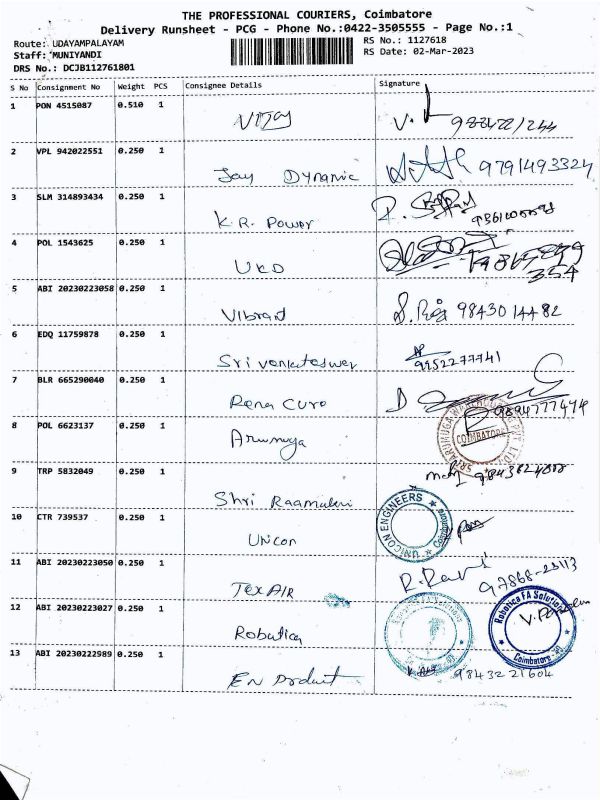 THE PROFESSIONAL COURIERS, Coimbatore
Delivery Runsheet - PCG - Phone No.:0422-3505555 - Page No.:1
Route: UDAYAMPALAYAM RS No.: 1127618
Staff: MUNIYANDI RS Date: 02-Mar-2023
DRS No.: DCJB112761801
S No Consignment No Weight PCS Consignee Details Signature
1 PON 4515087 0.510 1
Vijay V.
2 VPL 942022551 0.250 1
Jay Dynamic 9791493324
3 SLM 314893434 0.250 1
K.R. Power
4 POL 1543625 0.250 1
UKD
354
5 ABI 20230223058 0.250 1
Vibrant 9843014482
6 EDQ 11759878 0.250 1
Sri venkateswer 9952277741
7 BLR 665290040 0.250 1
Rena Curo
8 POL 6623137 0.250 1
Arumuga COIMBATORE
9 TRP 5832049 0.250 1
Shri
10 CTR 739537 0.250 1
Unicon UNICON ENGINEERS Coimbatore
11 ABI 20230223050 0.250 1
Tex AIR R. Ravi 97868-23113
12 ABI 20230223027 0.250 1
Robotica Robotica FA Solutions Coimbatore
13 ABI 20230222989 0.250 1
En Product 9843221604